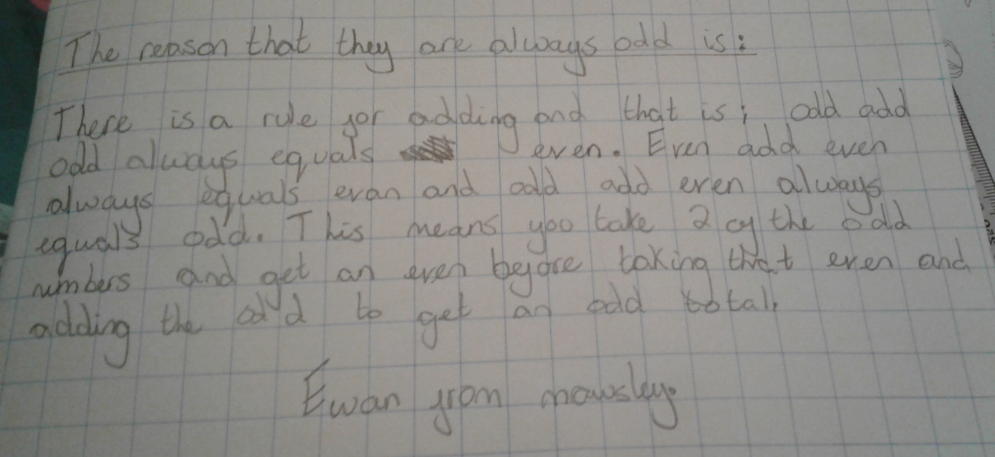 The reason that they are always odd is:
There is a rule for adding and that is; odd add
odd always equals even. Even add even
always equals evan and odd add even always
equals odd. This means you take 2 of the odd
numbers and get an even before taking that even and
adding the odd to get an odd total.
Ewan from mowsley.